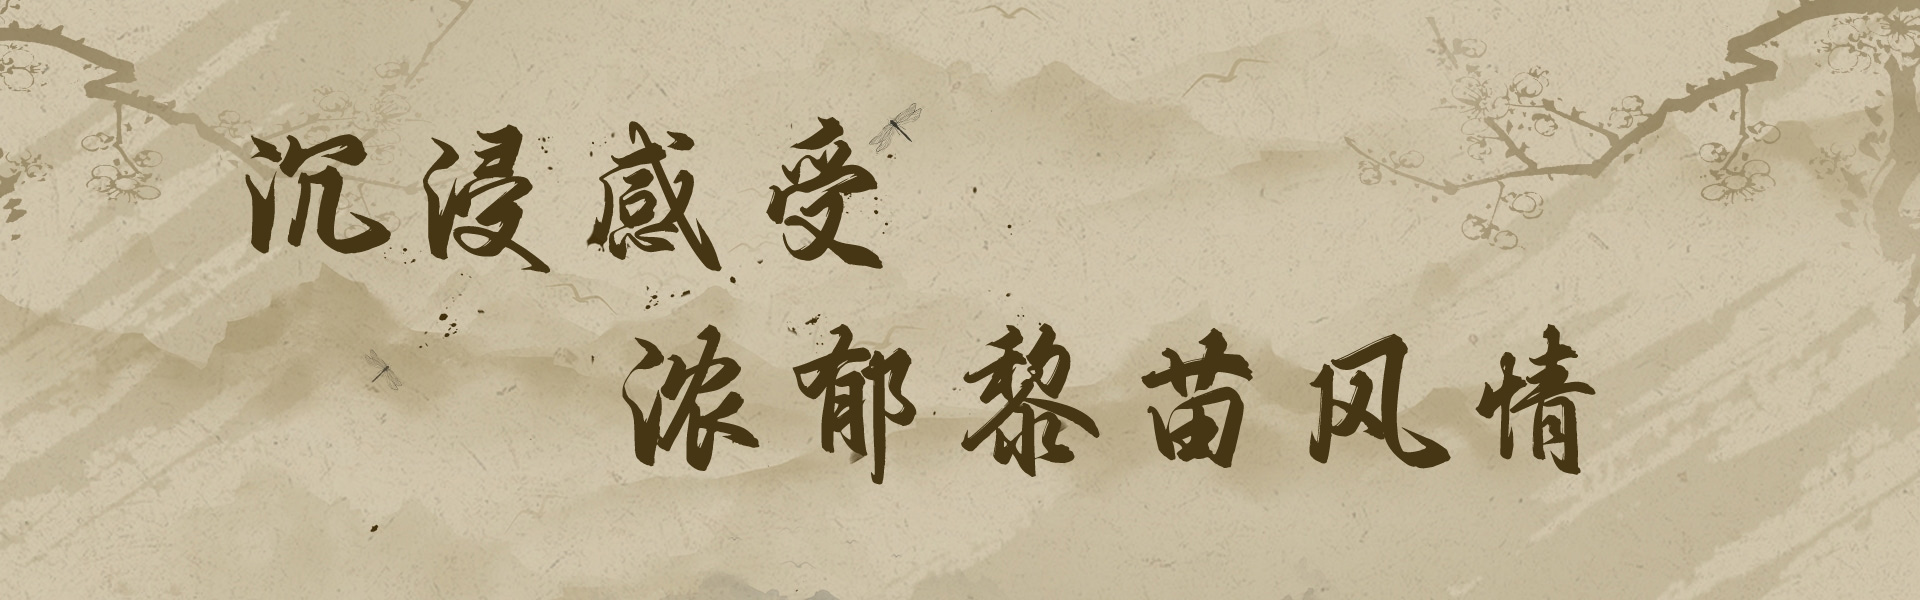 沉浸感受
浓郁黎苗风情